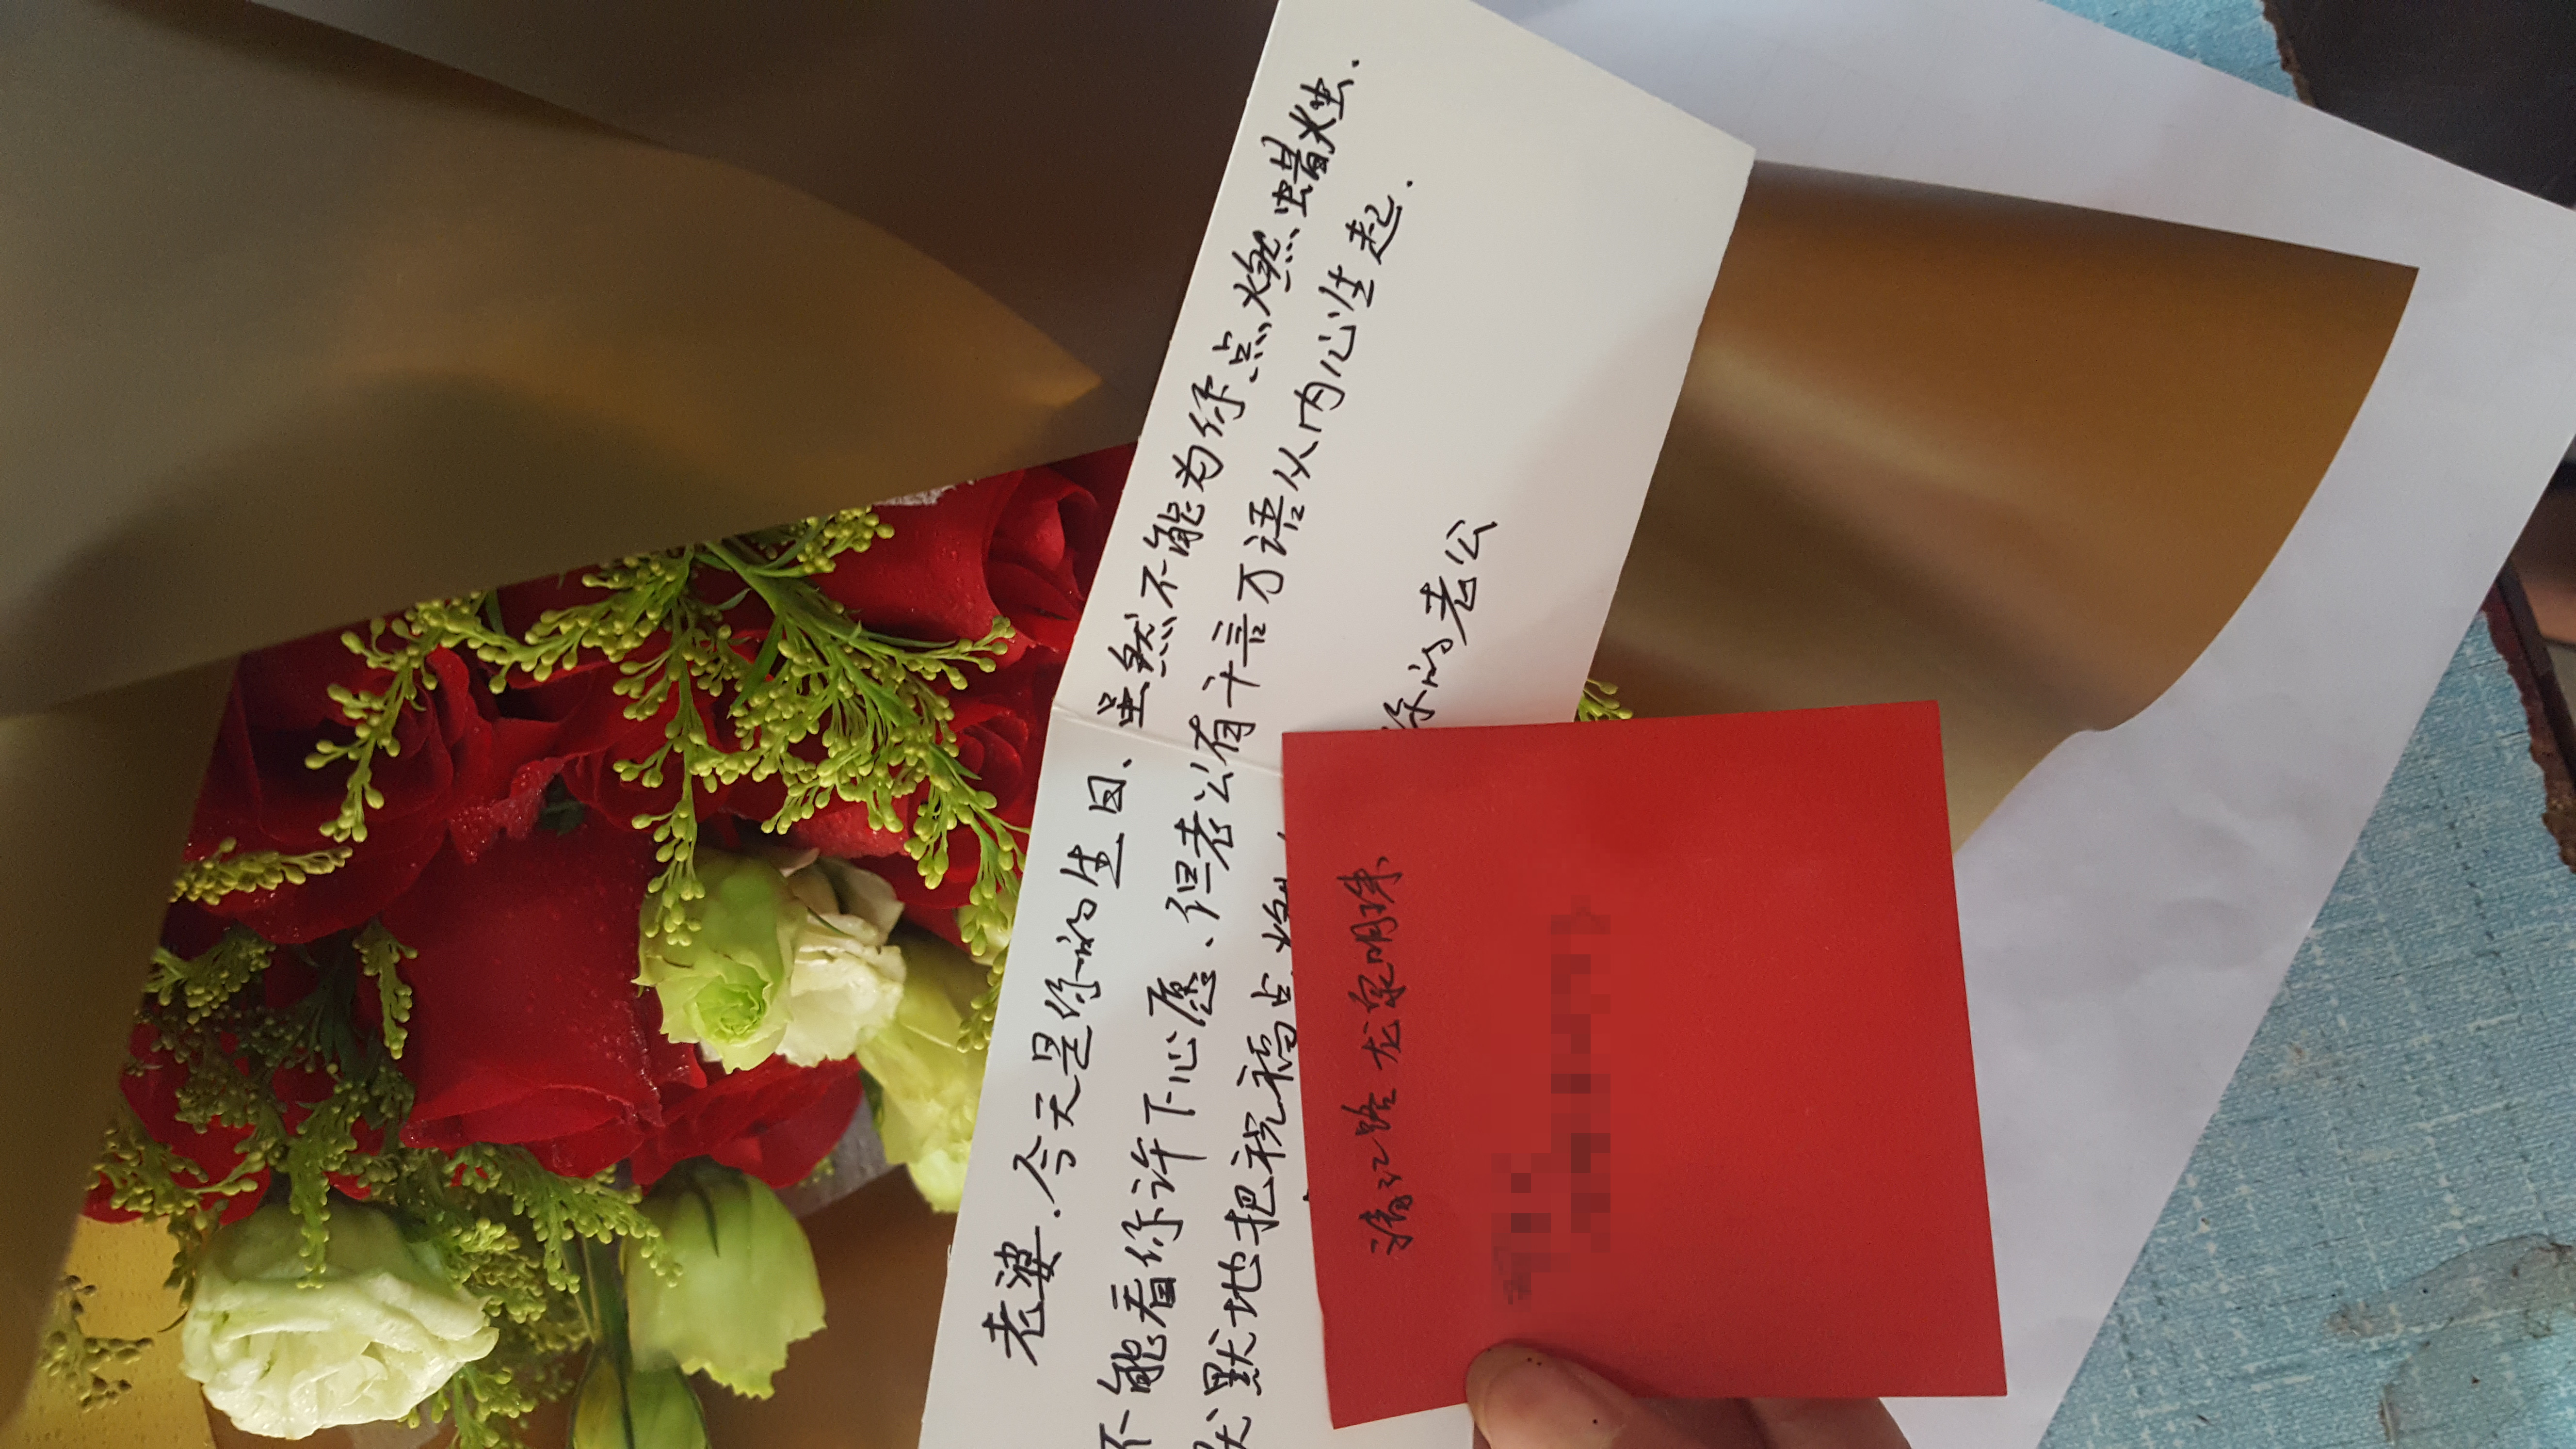 老婆.今天是你的生日、虽然不能为你点燃蜡烛.
不能看你许下心愿、但老公有千言万语从内心生起.
默默地把祝福点燃
你的老公
清江路龙泉明珠